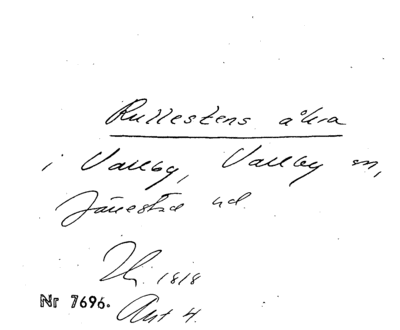 Rullestens åkra
i Vallby, Vallby sn,
Järrestad hd.
1818
Nr 7696. Akt 4.